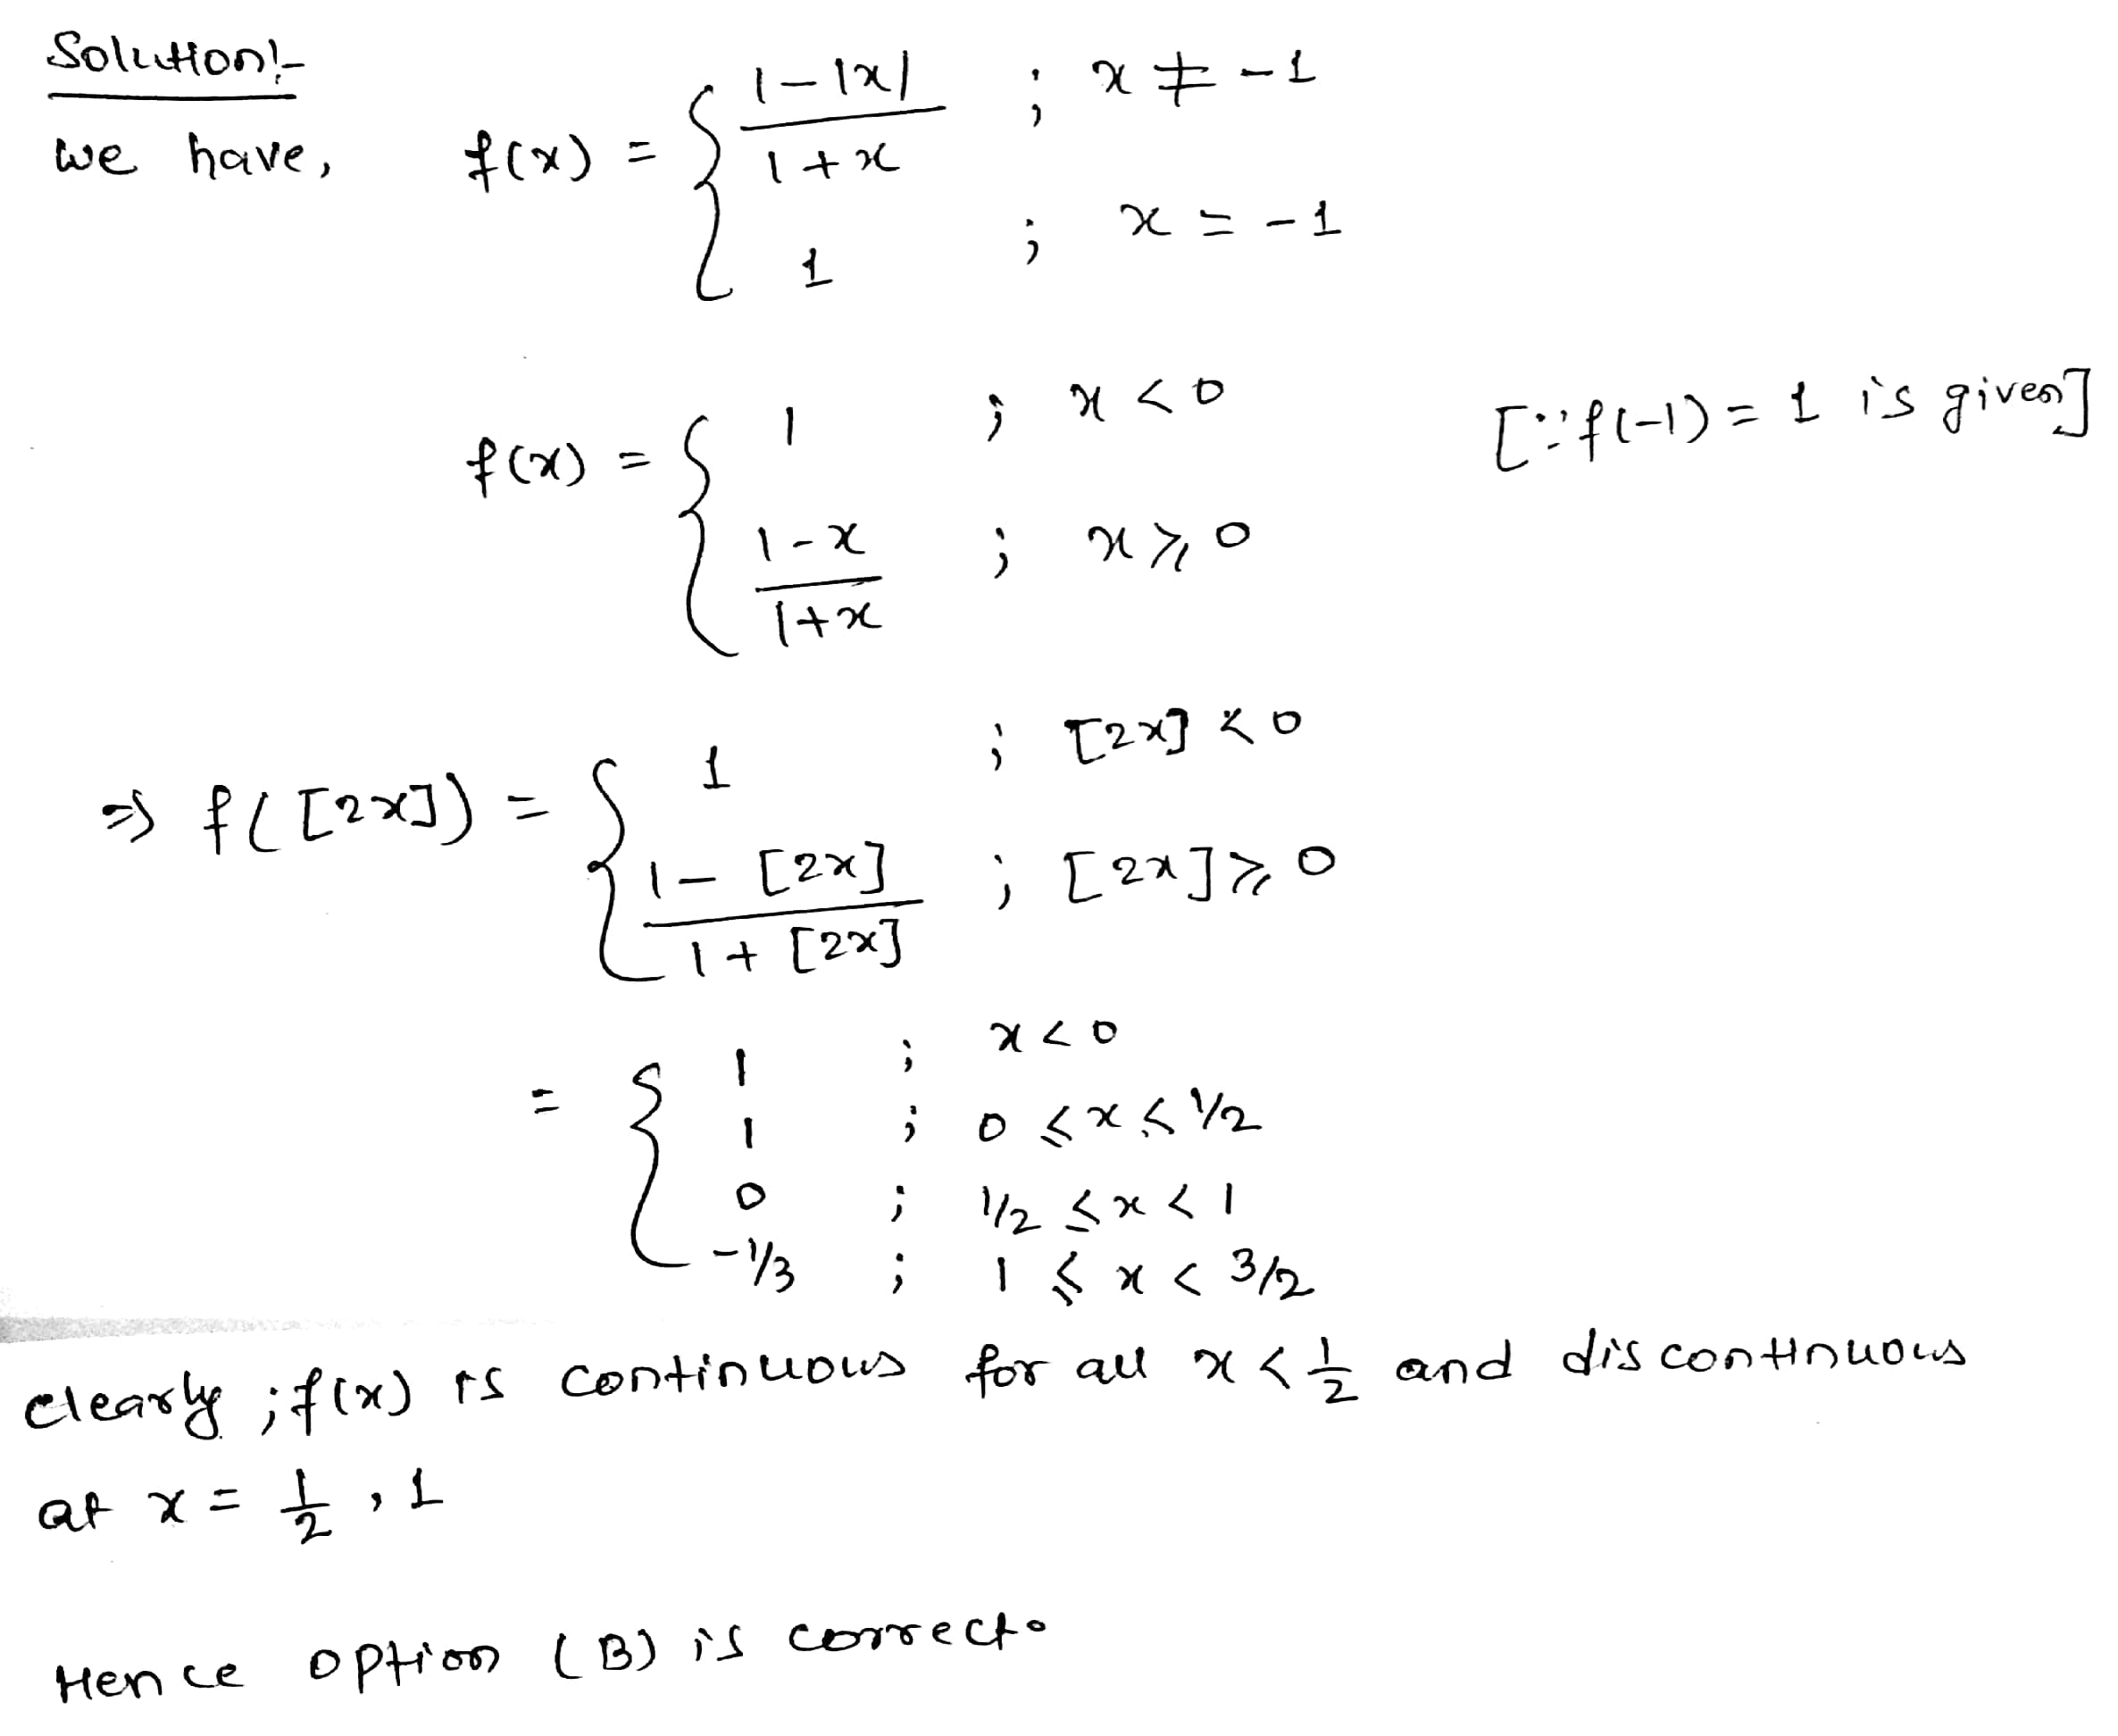 Solution:-
we have, f(x) = { (1-|x|)/(1+x) ; x ≠ -1
1 ; x = -1
f(x) = { 1 ; x < 0 [∵ f(-1) = 1 is given]
(1-x)/(1+x) ; x ⩾ 0
⇒ f([2x]) = { 1 ; [2x] < 0
(1-[2x])/(1+[2x]) ; [2x] ⩾ 0
= { 1 ; x < 0
1 ; 0 ≤ x ≤ 1/2
0 ; 1/2 ≤ x < 1
-1/3 ; 1 ≤ x < 3/2
clearly ; f(x) is continuous for all x < 1/2 and discontinuous
at x = 1/2 , 1
Hence option (B) is correct.